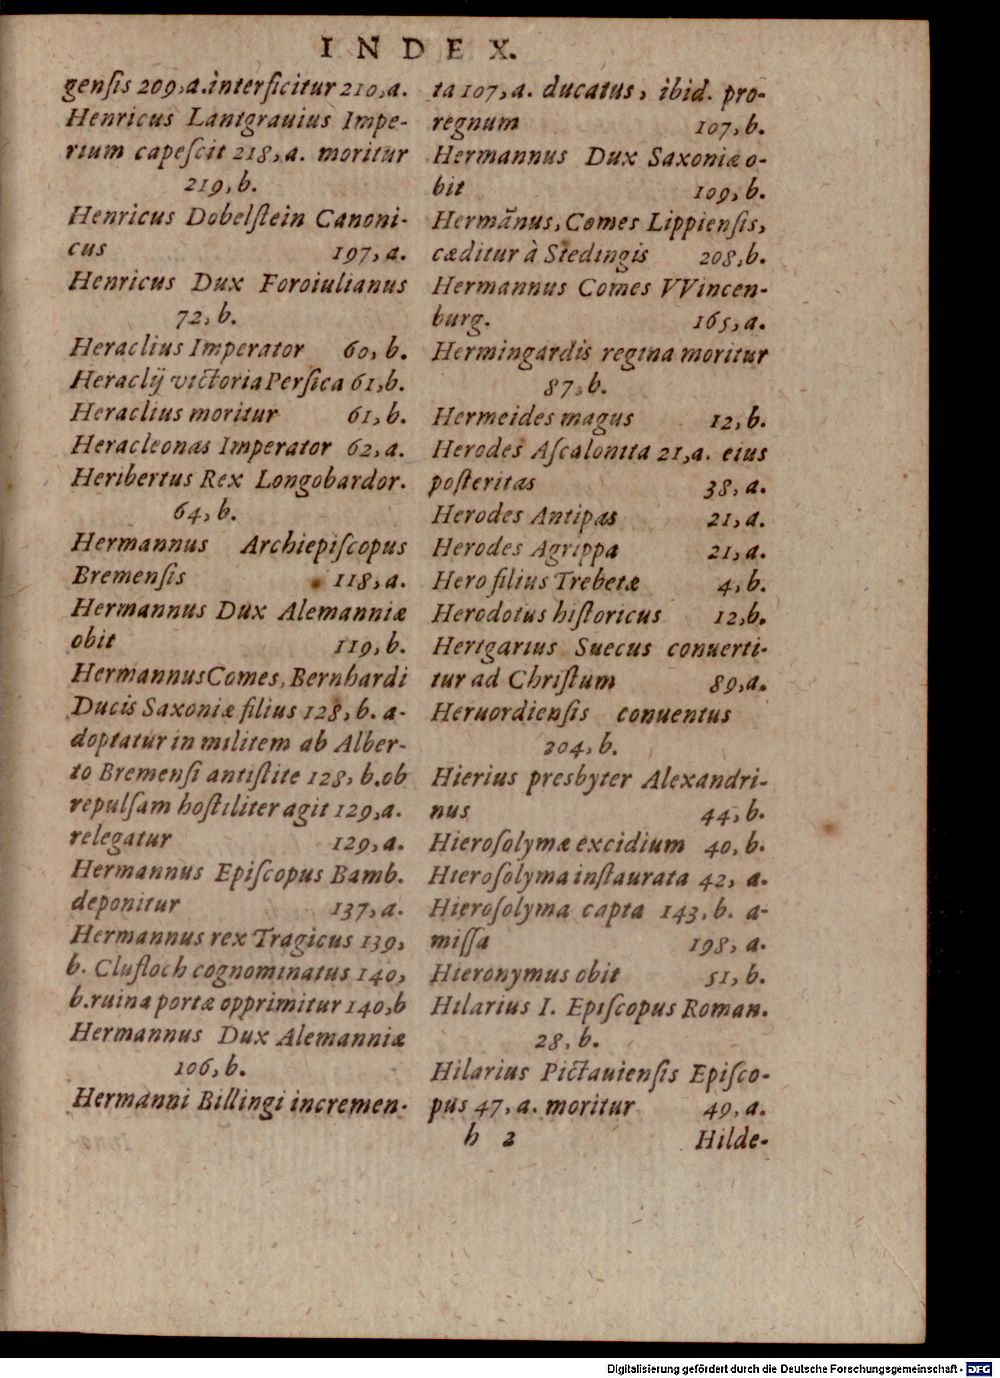 INDEX.
genſis 209,a. interficitur 210,a.
Henricus Lantgrauius Impe-
rium capeſcit 218,a. moritur
219,b.
Henricus Dobelſtein Canoni-
cus 197,a.
Henricus Dux Foroiulianus
72,b.
Heraclius Imperator 60,b.
Heraclij victoria Perſica 61,b.
Heraclius moritur 61,b.
Heracleonas Imperator 62,a.
Heribertus Rex Longobardor.
64,b.
Hermannus Archiepiſcopus
Bremenſis 118,a.
Hermannus Dux Alemanniæ
obit 119,b.
Hermannus Comes, Bernhardi
Ducis Saxoniæ filius 128,b. a-
doptatur in militem ab Alber-
to Bremenſi antiſtite 128,b. ob
repulſam hoſtiliter agit 129,a.
relegatur 129,a.
Hermannus Epiſcopus Bamb.
deponitur 137,a.
Hermannus rex Tragicus 139,
b. Clufloch cognominatus 140,
b. ruina portæ opprimitur 140,b
Hermannus Dux Alemanniæ
106,b.
Hermanni Billingi incremen-
ta 107,a. ducatus, ibid. pro-
regnum 107,b.
Hermannus Dux Saxoniæ o-
bit 109,b.
Hermãnus, Comes Lippienſis,
cæditur à Stedingis 208,b.
Hermannus Comes VVincen-
burg. 165,a.
Hermingardis regina moritur
87,b.
Hermeides magus 12,b.
Herodes Aſcalonita 21,a. eius
poſteritas 38,a.
Herodes Antipas 21,a.
Herodes Agrippa 21,a.
Hero filius Trebetæ 4,b.
Herodotus hiſtoricus 12,b.
Herigarius Suecus conuerti-
tur ad Chriſtum 89,a.
Heruordienſis conuentus
204,b.
Hierius presbyter Alexandri-
nus 44,b.
Hieroſolymæ excidium 40,b.
Hieroſolyma inſtaurata 42,a.
Hieroſolyma capta 143,b. a-
miſſa 198,a.
Hieronymus obit 51,b.
Hilarius I. Epiſcopus Roman.
28,b.
Hilarius Pictauienſis Epiſco-
pus 47,a. moritur 49,a.
h 2 Hilde-
Digitalisierung gefördert durch die Deutsche Forschungsgemeinschaft - DFG